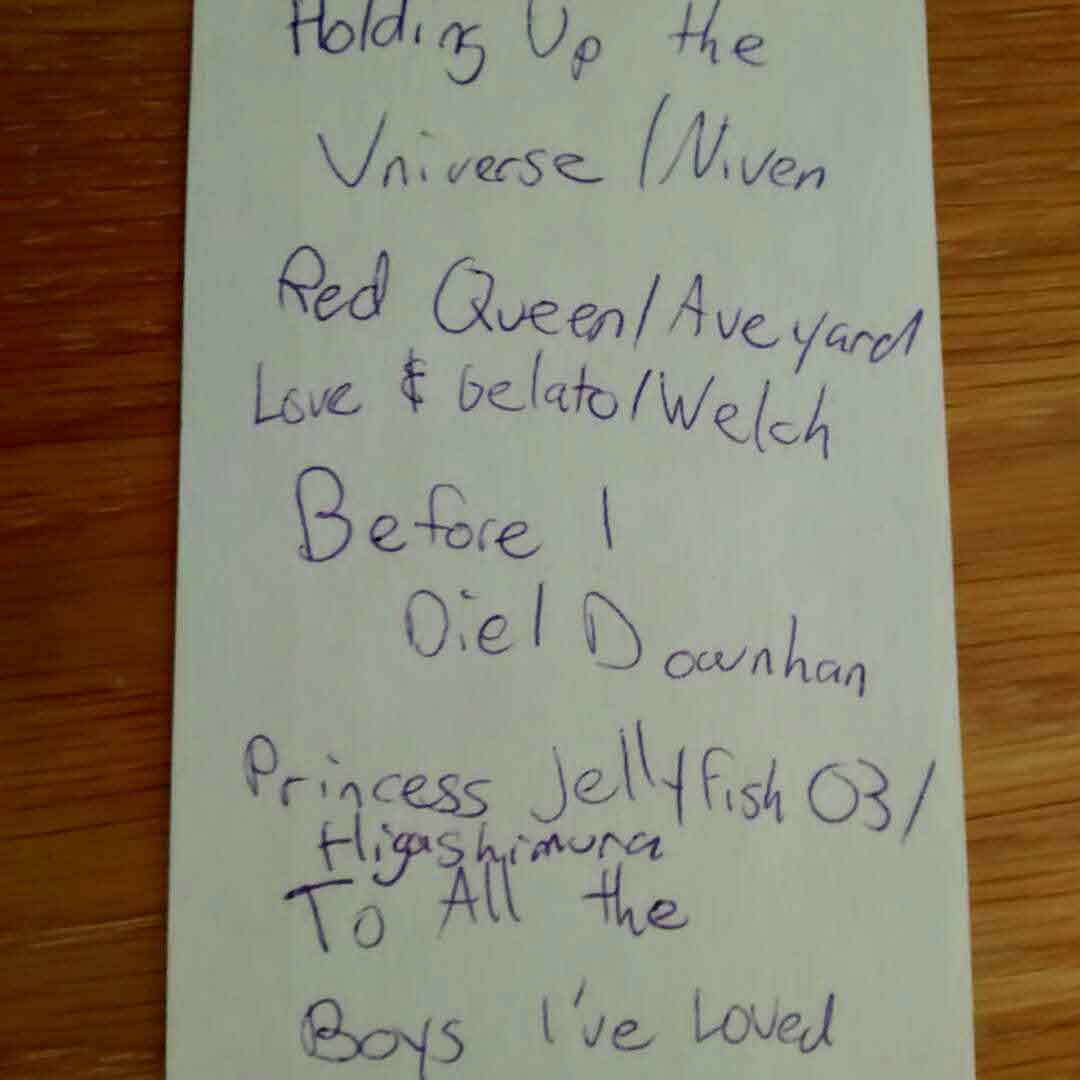 Holding Up the
Universe / Niven
Red Queen / Aveyard
Love & Gelato / Welch
Before I
Die / Downhan
Princess Jellyfish 03 /
Higashimura
To All the
Boys I've Loved